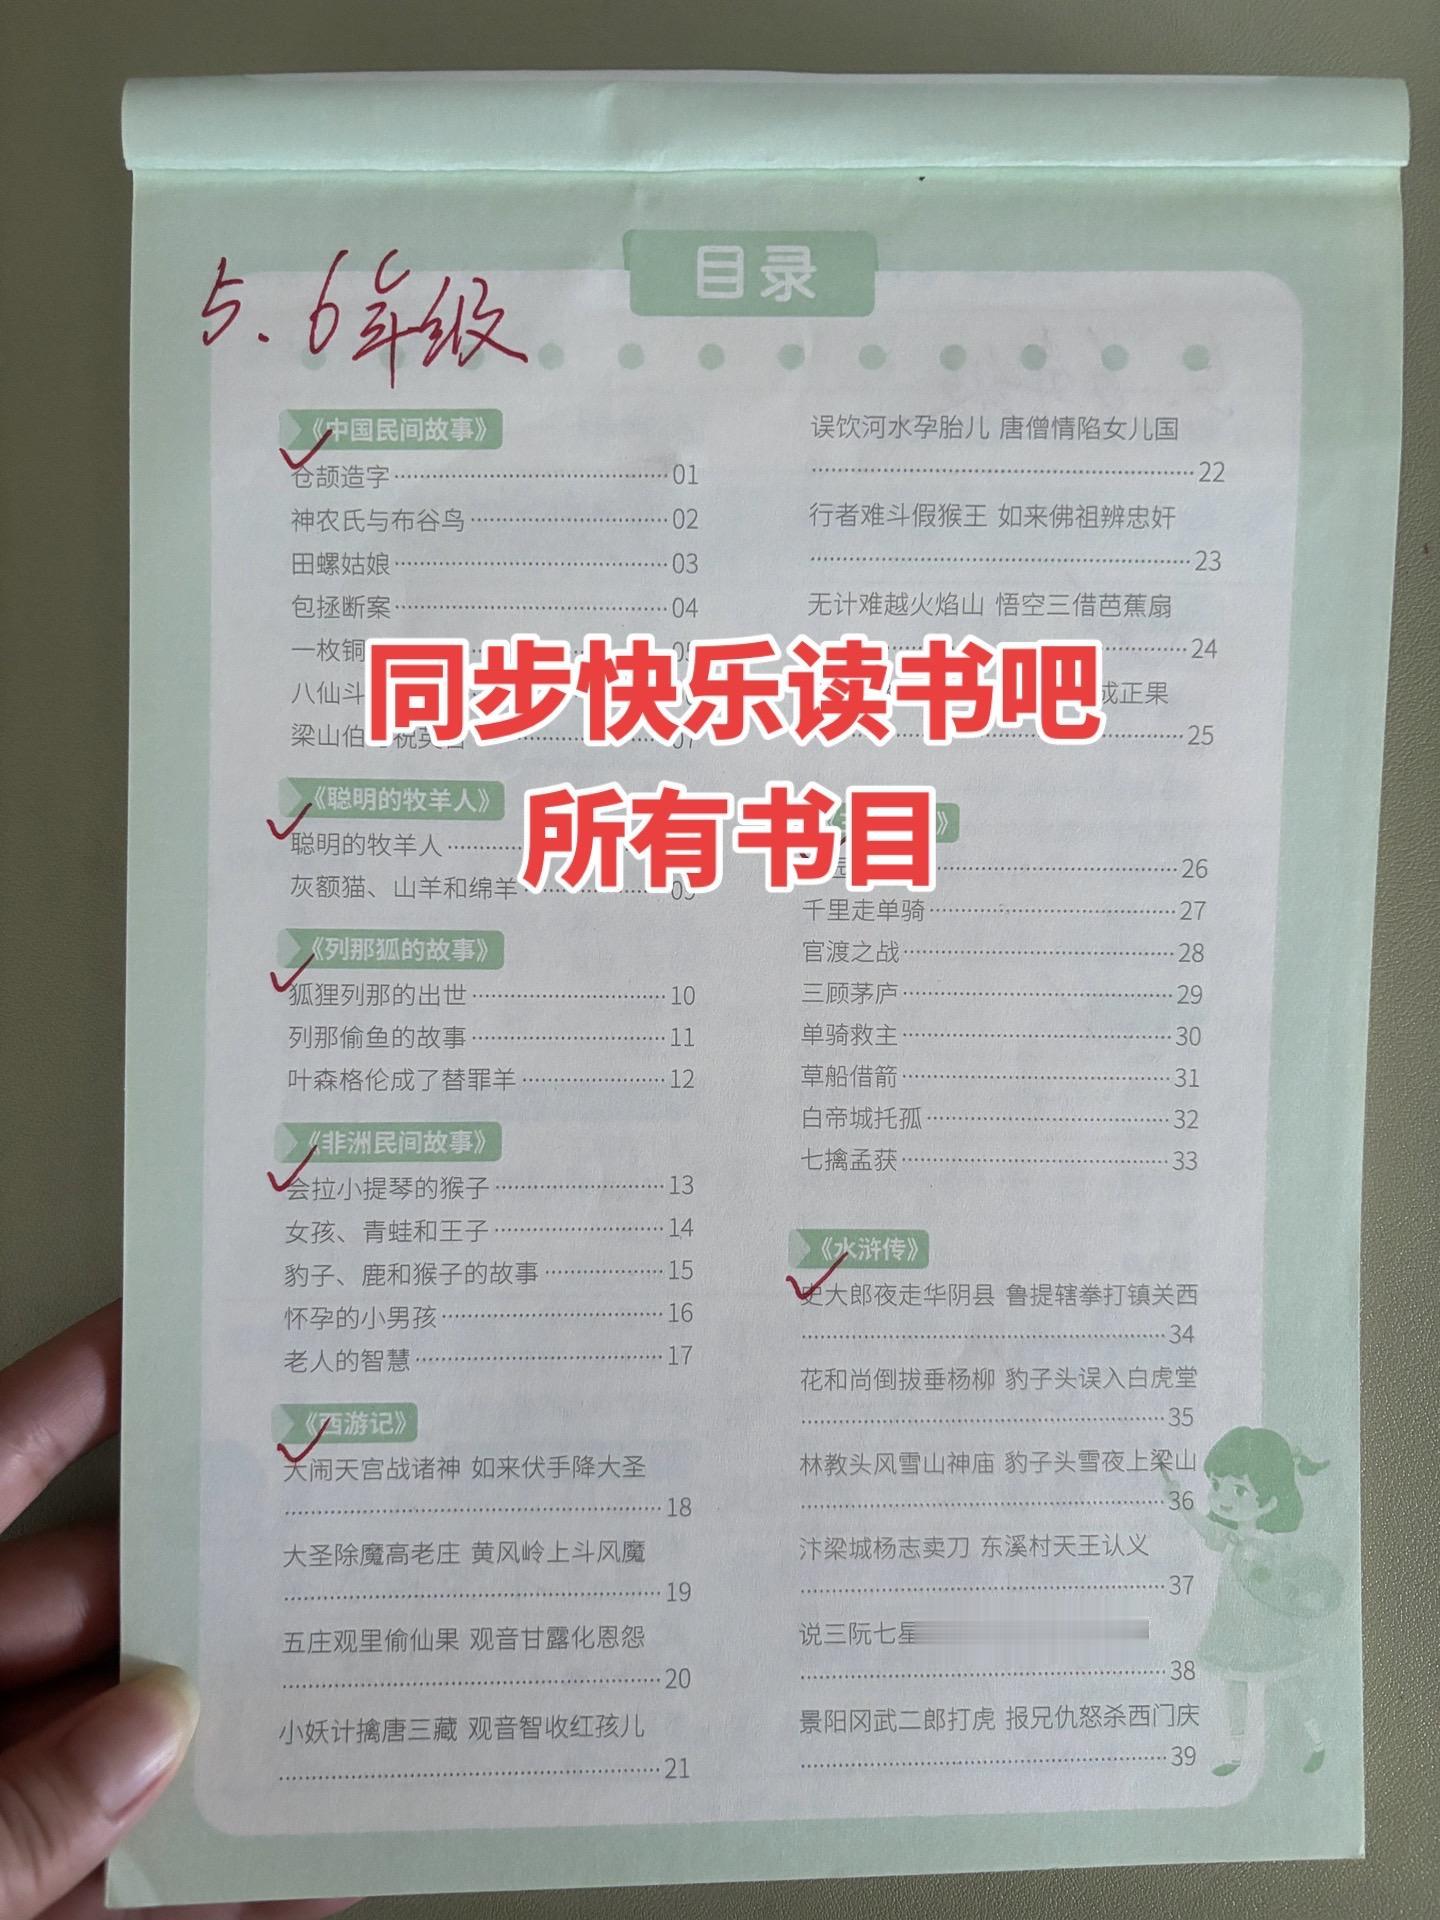 目录
5.6年级
《中国民间故事》
仓颉造字 01
神农氏与布谷鸟 02
田螺姑娘 03
包拯断案 04
一枚铜
八仙斗
梁山伯
同步快乐读书吧
所有书目
《聪明的牧羊人》
聪明的牧羊人
灰额猫、山羊和绵羊 09
《列那狐的故事》
狐狸列那的出世 10
列那偷鱼的故事 11
叶森格伦成了替罪羊 12
《非洲民间故事》
会拉小提琴的猴子 13
女孩、青蛙和王子 14
豹子、鹿和猴子的故事 15
怀孕的小男孩 16
老人的智慧 17
《西游记》
大闹天宫战诸神 如来伏手降大圣
18
大圣除魔高老庄 黄风岭上斗风魔
19
五庄观里偷仙果 观音甘露化恩怨
20
小妖计擒唐三藏 观音智收红孩儿
21
误饮河水孕胎儿 唐僧情陷女儿国
22
行者难斗假猴王 如来佛祖辨忠奸
23
无计难越火焰山 悟空三借芭蕉扇
24
成正果
25
26
千里走单骑 27
官渡之战 28
三顾茅庐 29
单骑救主 30
草船借箭 31
白帝城托孤 32
七擒孟获 33
《水浒传》
史大郎夜走华阴县 鲁提辖拳打镇关西
34
花和尚倒拔垂杨柳 豹子头误入白虎堂
35
林教头风雪山神庙 豹子头雪夜上梁山
36
汴梁城杨志卖刀 东溪村天王认义
37
说三阮七星
38
景阳冈武二郎打虎 报兄仇怒杀西门庆
39